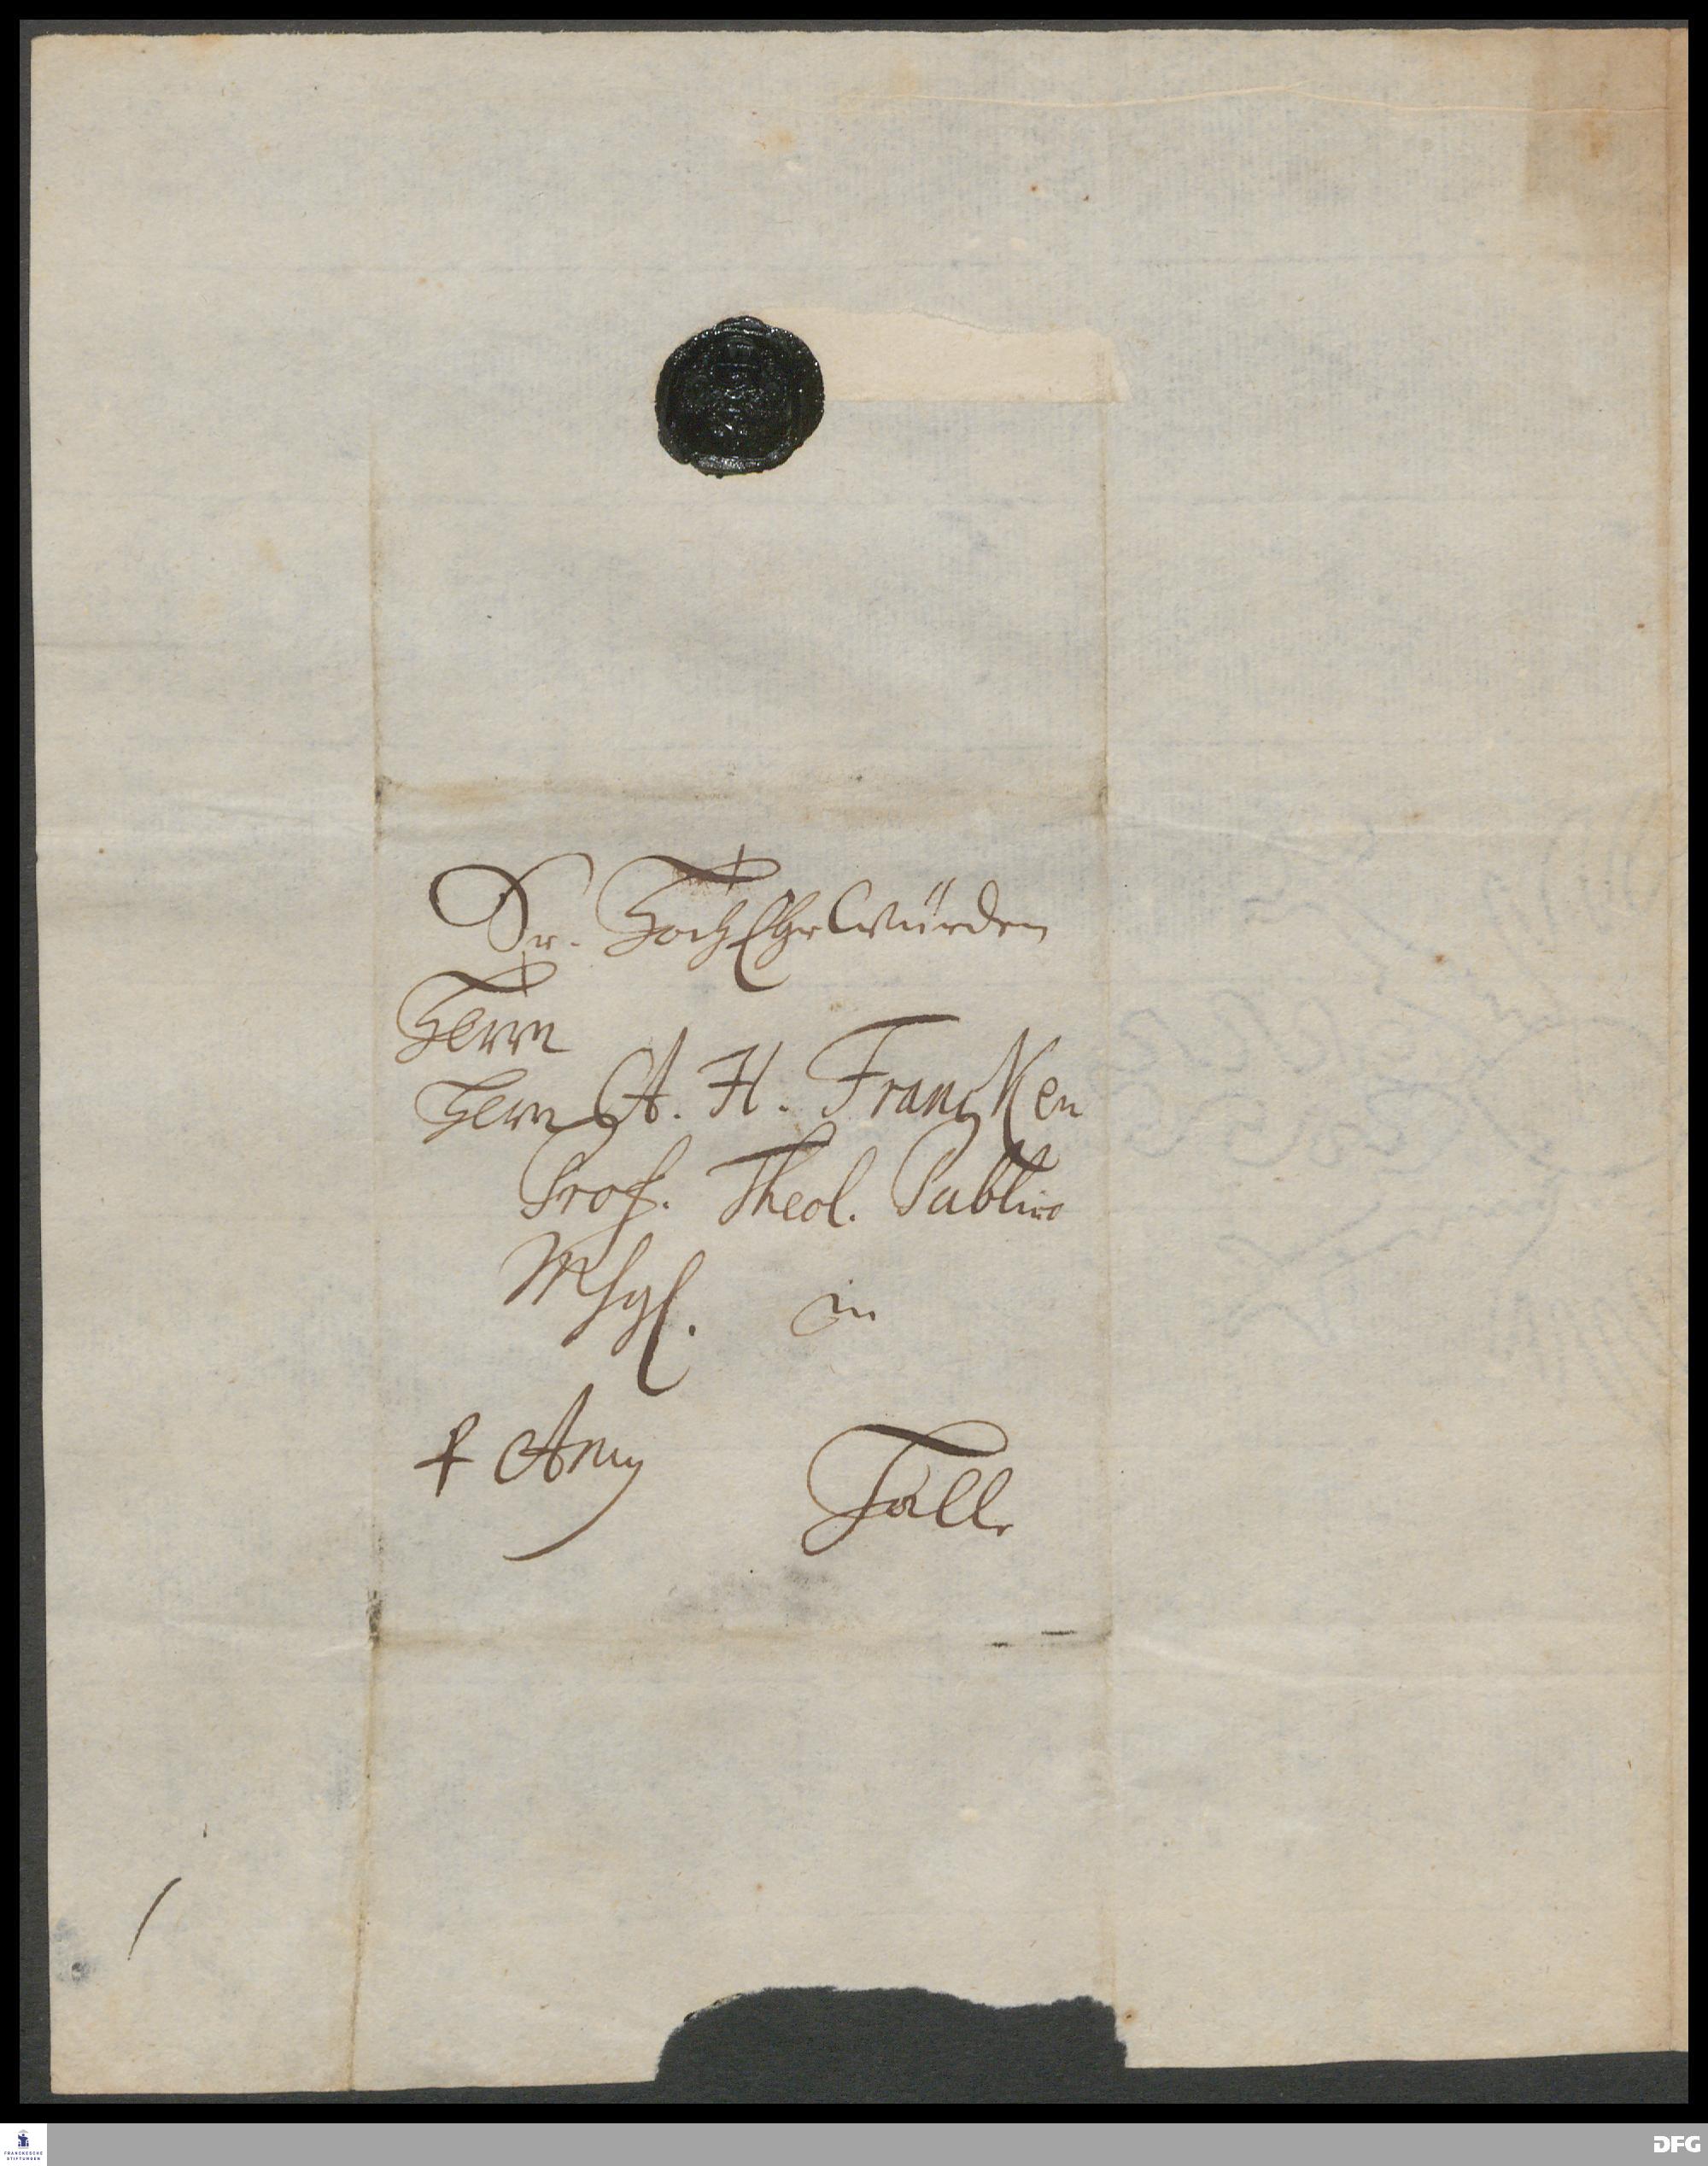 Sr. HochEhrWürden
Herrn
Herrn A. H. Francken
Prof. Theol. Publico
Mhgl. in
Halle
FRANCKESCHE
STIFTUNGEN
DFG